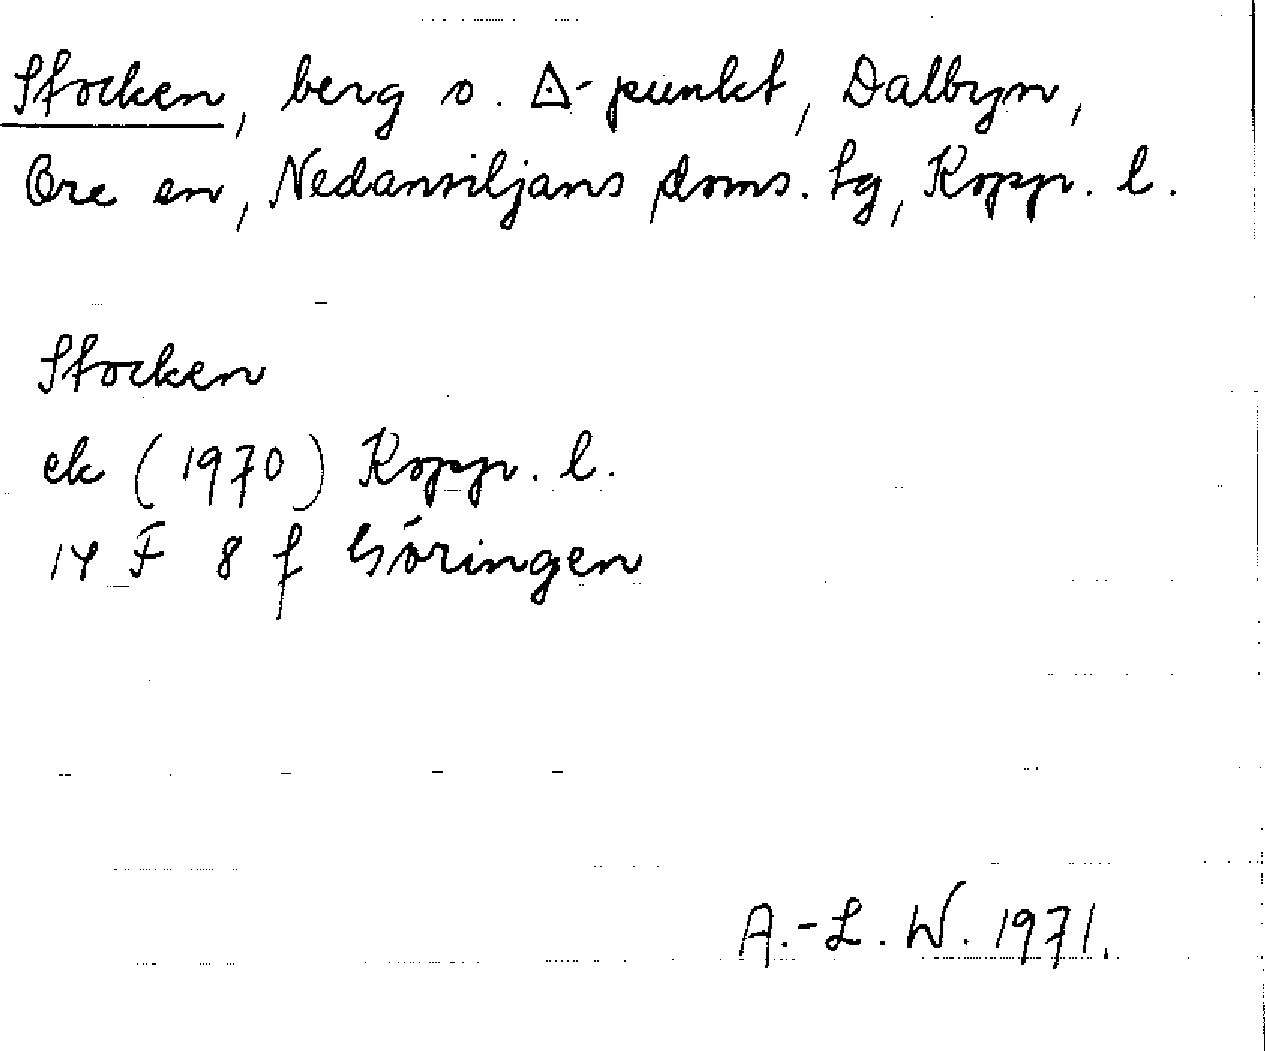 Stocken, berg o. △-punkt, Dalbyn,
Ore sn, Nedansiljans doms. tg, Kopp. l.
Stocken
ek (1970) Kopp. l.
14 F 8 f Göringen
A.-L. W. 1971.